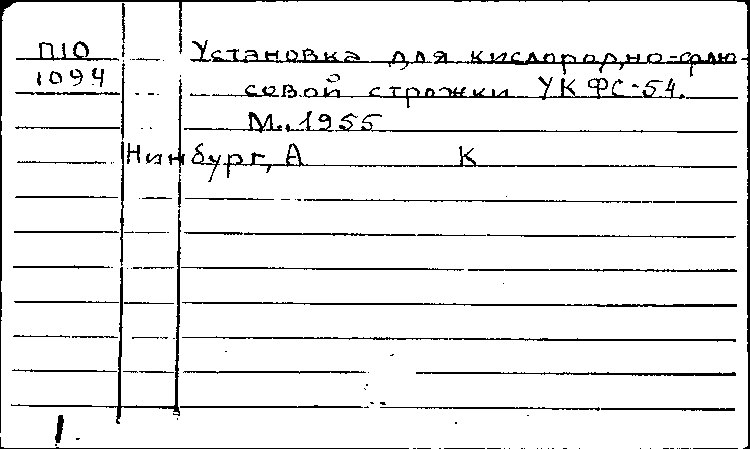 П10 Установка для кислородно-флю-
1094 совой строжки УКФС-54.
М., 1955
Нинбург, А К
1.